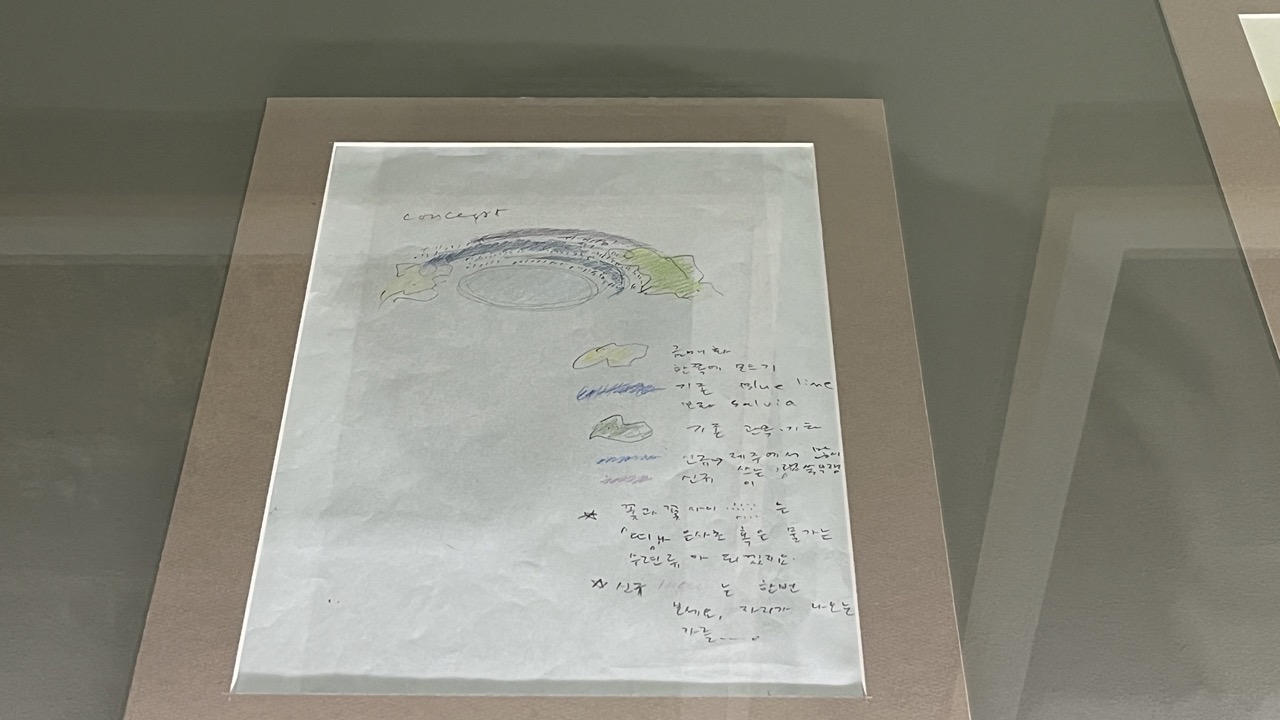 concept
금매화
한쪽에 모으기
기존 Blue line
보라 salvia
기존 관목.기타
신규→ 제주에서 많이
신규 쓰는
이
꽃과 꽃 사이 는
은사초 혹은 물가는
수련류 아 되겠지요.
☆ 신규 는 한번
보세요, 자리가 나오는
가를.....。